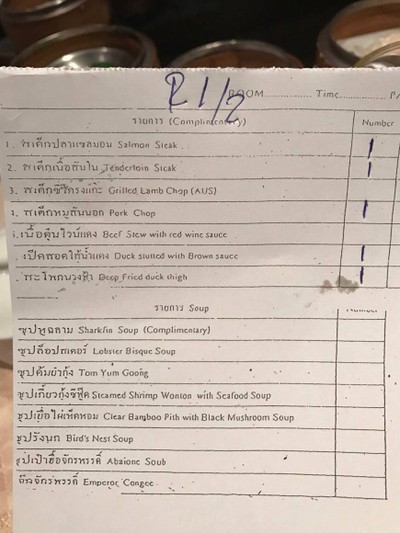 R 1/2
ROOM.............. Time..............
รายการ (Complimentary) Number
1. สเต็กปลาแซลมอน Salmon Steak 1
2. สเต็กเนื้อสันใน Tenderloin Steak 1
3. Grilled Lamb Chop (AUS)
4. สเต็กหมูสันนอก Pork Chop 1
เนื้อตุ๋นไวน์แดง Beef Stew with red wine sauce
Duck stuffed with Brown sauce 1
Deep Fried duck thigh 1
รายการ Soup Number
ซุปหูฉลาม Sharkfin Soup (Complimentary)
ซุปล็อบสเตอร์ Lobster Bisque Soup
ซุปต้มยำกุ้ง Tom Yum Goong
ซุปเกี๊ยวกุ้งซีฟู๊ด Steamed Shrimp Wonton with Seafood Soup
ซุปเยื่อไผ่เห็ดหอม Clear Bamboo Pith with Black Mushroom Soup
ซุปรังนก Bird's Nest Soup
ซุปเป๋าฮื้อจักรพรรดิ์ Abalone Soup
Emperor Congee